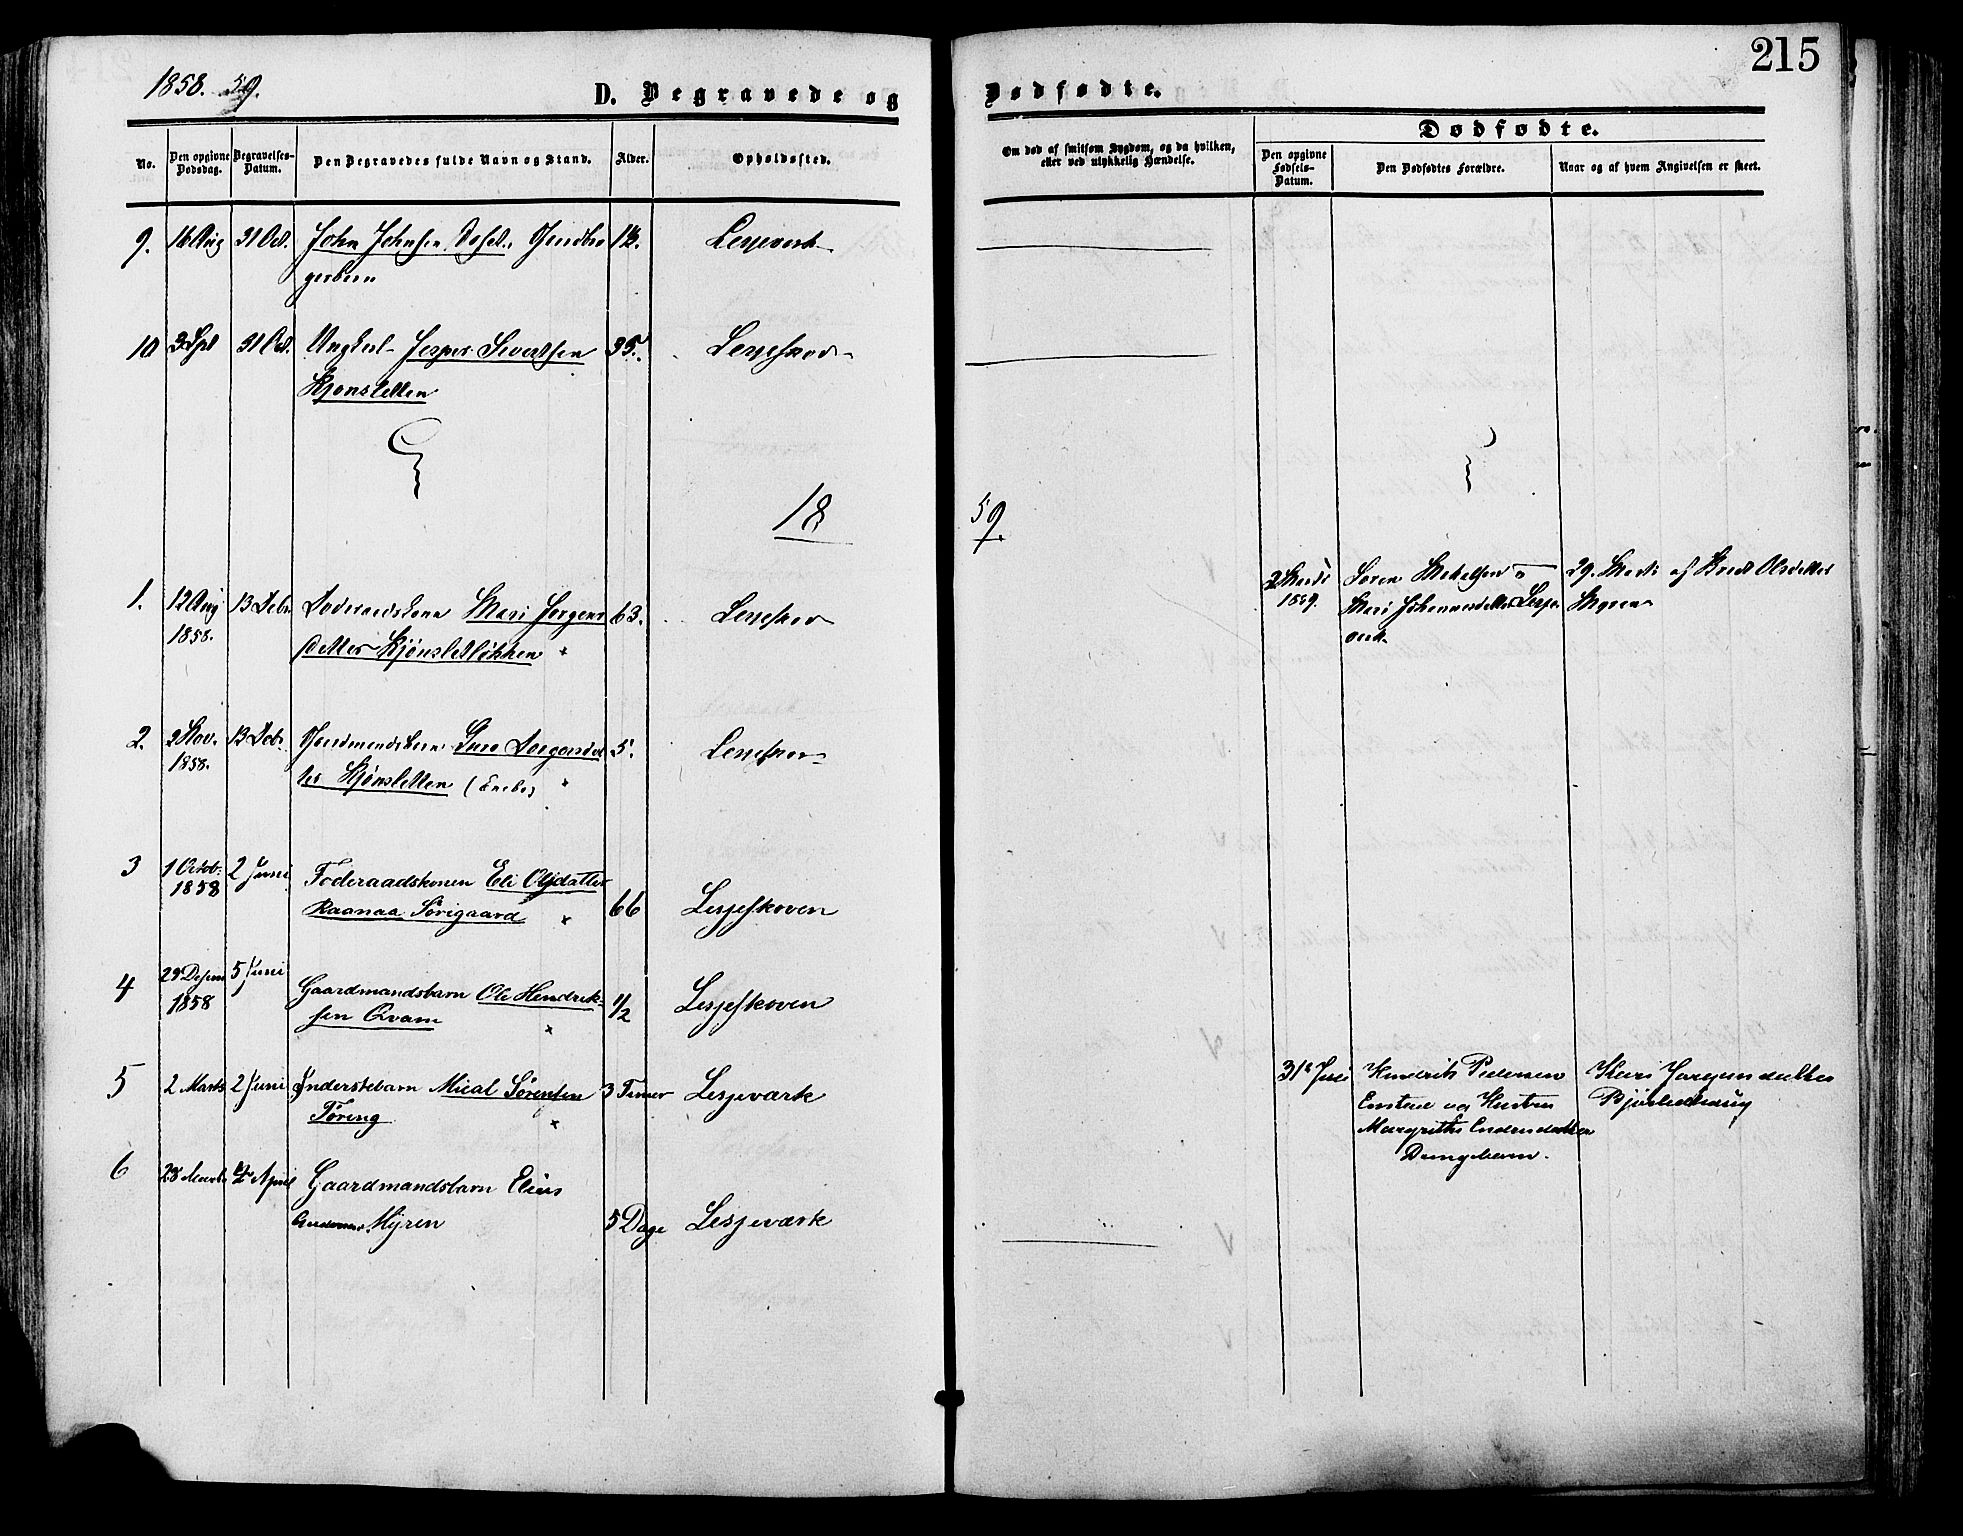 1858. 59.
D. Begravede og Dødfødte.
215
No.
Den opgivne Dødsdag.
Begravelses-Datum.
Den Begravedes fulde Navn og Stand.
Alder.
Opholdssted.
Om død af smitsom Sygdom, og da hvilken, eller ved ulykkelig Hændelse.
Dødfødte.
Den opgivne Fødsels-Datum.
Den Dødfødtes Forældre.
Naar og af hvem Angivelsen er skeet.
9. 16 Aug 31 Oct. John Johnsen
Lesjeverk
10 3 Sept 31 Oct. Ungkarl Jesper Sivertsen 35. Lesjeskov
Kjønsletten
18 59.
1. 12 Aug 13 Febr. Føderaadskone Mari Jørgens 63. Lesjeskov
1858. datter Kjønsletløkken
2 Marts Søren Mikalsen og 29. Marts af Brit Olsdatter
1859. Mari Johannesdatter Lesje Myren
verk
2. 2 Nov. 13 Febr. Gaardmandsbarn 5. Lesjeskov
1858. ter Kjønsletten (Enebo)
3 1 Octob. 2 Juni Føderaadskonen Eli Olsdatter
1858 Raanaa Sörigaard 66 Lesjeskoven
4 29 Desem 5 Juni Gaardmandsbarn Ole Hendrik- 1/2 Lesjeskoven
1858 sen Qvam
5 2 Marts 2 Juni Inderstebarn Mical Sørensen 3 Timer Lesjeværk
Töreng
31te Juli Hendrik Pedersen Kari Jørgensdatter
Enstad og Kusten
Margrethe
6 28 Marts April Gaardmandsbarn Elias
Myren 5 Dage Lesjeværk